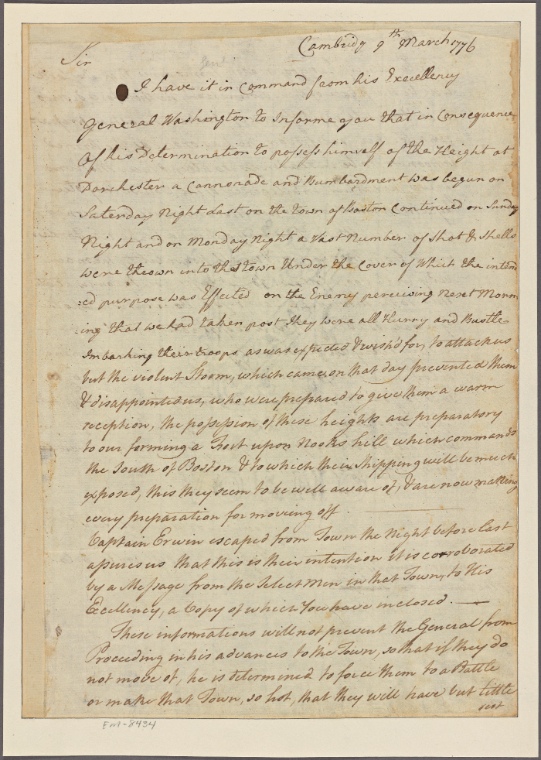 Cambridg 9th March 1776
Sir
I have it in Command from his Excellency
General Washington to Informe you that in Consequence
Of his Determination to possess himself of the Height at
Dorchester a Cannonade and Bumbardment was begun on
Saterday Night last on the town of Boston Continued on Sunday
Night and on Monday Night a Vast Number of Shot & Shells
were thrown into the town Under the Cover of Which the intend
:ed purpose was Effected on the Enemy perceiving Next Morn
:ing that we had taken post, they were all Hurry and Bustle
Imbarking their troops, as was expected & wish'd for, to attack us
but the violent Storm, which came on that day prevented them
& disappointed us, who were prepared to give them a warm
reception, the possession of these heights are preparatory
to our forming a Post upon Nooks hill which commands
the South of Boston & to which their Shipping will be much
exposed, this they seem to be well aware of, & are now making
every preparation for moving off
Captain Erwin escaped from Town the Night before last
assures us that this is their intention it is corroborated
by a Message from the Select Men in that Town, to His
Excellency, a Copy of which You have inclosed.
These informations will not prevent the General from
Proceeding in his advances to the Town, so that if they do
not move of, he is determined to force them to a Battle
or make that Town, so hot, that they will have but little
rest
Em-8434